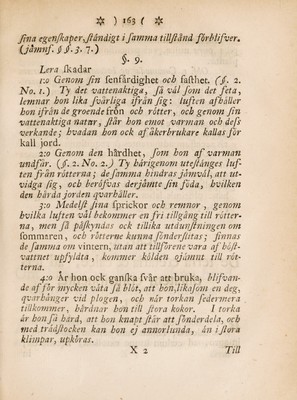 ※ ) 163 ( ※
sina egenskaper, ständigt i samma tillstånd förblifver.
(jämnf. §§. 3. 7.)
§. 9.
Lera skadar
1:o Genom sin senfärdighet och fasthet. (§. 2.
No. 1.) Ty det vattenaktiga, så väl som det feta,
lemnar hon lika svårliga ifrån sig: luften afhåller
hon ifrån de groende frön och rötter, och genom sin
vattenaktiga natur, står hon emot varman och dess
verkande; hvadan hon ock af åkerbrukare kallas för
kall jord.
2:o Genom den hårdhet, som hon af varman
undfår. (§. 2. No. 2.) Ty härigenom utestänges luf-
ten från rötterna; de samma hindras jämväl, att ut-
vidga sig, och beröfvas derjämte sin föda, hvilken
den hårda jorden qvarhåller.
3:o Medelst sina sprickor och remnor, genom
hvilka luften väl bekommer en fri tillgång til rötter-
na, men så påskyndas ock tillika utdunstningen om
sommaren, och rötterne kunna sönderslitas; sinnas
de samma om vintern, utan att tillförene vara af höst-
vattnet upfyldta, kommer kölden ojämnt till rötter-
na.
4:o Är hon ock ganska svår att bruka, blifvan-
de af för mycken väta så blöt, att hon, likasom en deg,
qvarhänger vid plogen, och när torkan sedermera
tillkommer, hårdnar hon till stora kokor. I torka
är hon så hård, att hon knapt står att sönderdela, och
med trädstocken kan hon ej annorlunda, än i stora
klimpar, upköras.
X 2
Till